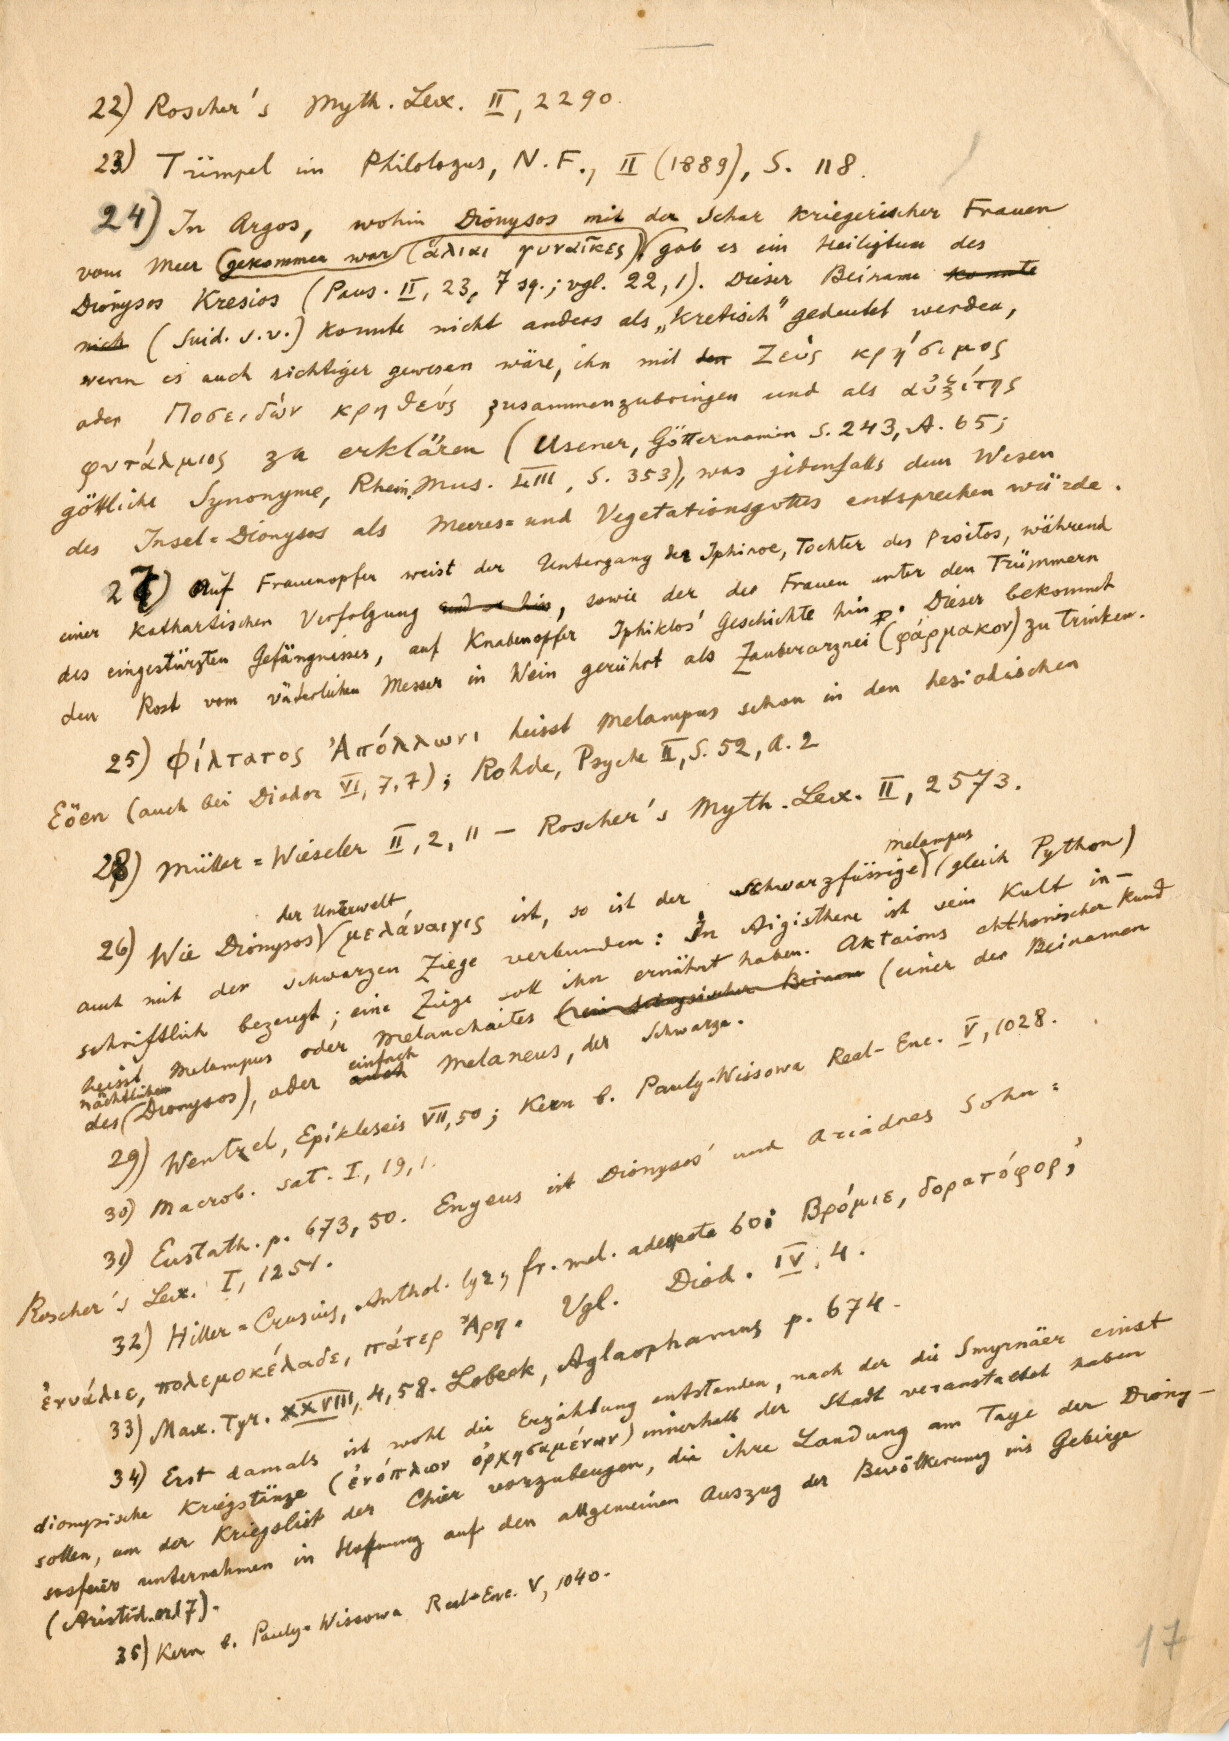 22) Roscher's Myth. Lex. II, 2290.
23) Trümpel im Philologus, N.F., II (1889), S. 118.
24) In Argos, wohin Dionysos mit der Schar kriegerischer Frauen
vom Meer gekommen war (ἅλιαι γυναῖκες), gab es ein Heiligtum des
Dionysos Kresios (Paus. II, 23, 7 sq.; vgl. 22, 1). Dieser Beiname konnte
nich (Suid. s.v.) konnte nicht anders als „kretisch" gedeutet werden,
wenn es auch richtiger gewesen wäre, ihn mit den Ζεὺς κρήσιμος
oder Ποσειδών κρηθεύς zusammenzubringen und als αὐξίτης
φυτάλμιος zu erklären (Usener, Götternamen S. 243, A. 65;
göttliche Synonyme, Rhein. Mus. LIII, S. 353), was jedenfalls dem Wesen
des Insel=Dionysos als Meeres= und Vegetationsgottes entsprechen würde.
27) Auf Frauenopfer weist der Untergang der Iphinoe, Tochter des Proitos, während
einer kathartischen Verfolgung und so hin, sowie der der Frauen unter den Trümmern
des eingestürzten Gefängnisses, auf Knabenopfer Iphiklos' Geschichte hin. Dieser bekommt
den Rost vom väterlichen Messer in Wein gerührt als Zauberarznei (φάρμακον) zu trinken.
25) Φίλτατος Ἀπόλλωνι heisst Melampus schon in den hesiodischen
Eöen (auch bei Diodor VI, 7, 7); Rohde, Psyche II, S. 52, A. 2
28) Müller=Wieseler II, 2, 11 – Roscher's Myth. Lex. II, 2573.
Melampus
26) Wie Dionysos μελάναιγις ist, so ist der schwarzfüssige (gleich Python)
der Unterwelt
auch mit der schwarzen Ziege verbunden: In Aigisthene ist sein Kult in–
schriftlich bezeugt; eine Ziege soll ihn ernährt haben. Aktaions chthonischer Hund
heisst Melampus oder Melanchaites (ein dionysischer Beiname (einer der Beinamen
des nächtlichen Dionysos), oder auch einfach Melaneus, der Schwarze.
29) Wentzel, Epikleseis VII, 50; Kern b. Pauly-Wissowa Real-Enc. V, 1028.
30) Macrob. sat. I, 19, 1.
31) Eustath. p. 673, 50. Enyeus ist Dionysos' und Ariadnes Sohn:
Roscher's Lex. I, 1251.
32) Hiller=Crusius, Anthol. lyr., fr. mel. adespota 60: Βρόμιε, δορατόφορ',
ἐνυάλιε, πολεμοκέλαδε, πάτερ Ἄρη. Vgl. Diod. IV, 4.
33) Max. Tyr. XXVIII, 4, 58. Lobeck, Aglaophamus p. 674.
34) Erst damals ist wohl die Erzählung entstanden, nach der die Smyrnäer einst
dionysische Kriegstänze (ἐνόπλων ὀρχησαμένων) innerhalb der Stadt veranstaltet haben
sollen, um der Kriegslist der Chier vorzubeugen, die ihre Landung am Tage der Diony–
sosfeier unternahmen in Hoffnung auf den allgemeinen Auszug der Bevölkerung ins Gebirge
(Aristid. or. 17).
35) Kern b. Pauly-Wissowa Real-Enc. V, 1040.
17